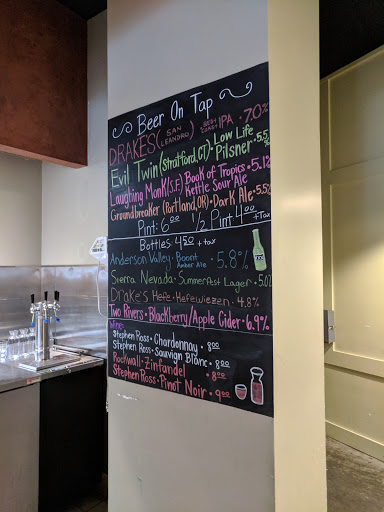 Beer On Tap
DRAKES (SAN LEANDRO) WEST COAST IPA • 7.0%
Evil Twin (Stratford, CT) • Low Life Pilsner • 5.5%
Laughing Monk (S.F.) Book of Tropics • 5.1%
Kettle Sour Ale
Groundbreaker (Portland, OR) • Dark Ale • 5.5%
Pint: 6.00 1/2 Pint 4.00 +Tax
Bottles • 4.50 + tax
Anderson Valley • Boont Amber Ale • 5.8%
Sierra Nevada • Summerfest Lager • 5.0%
Drake's Hefe • Hefeweizen • 4.8%
Two Rivers • Blackberry/Apple Cider • 6.9%
Wine:
Stephen Ross • Chardonnay • 8.00
Stephen Ross • Sauvign Blanc • 8.00
Rockwall • Zinfandel • 8.00
Stephen Ross • Pinot Noir • 9.00